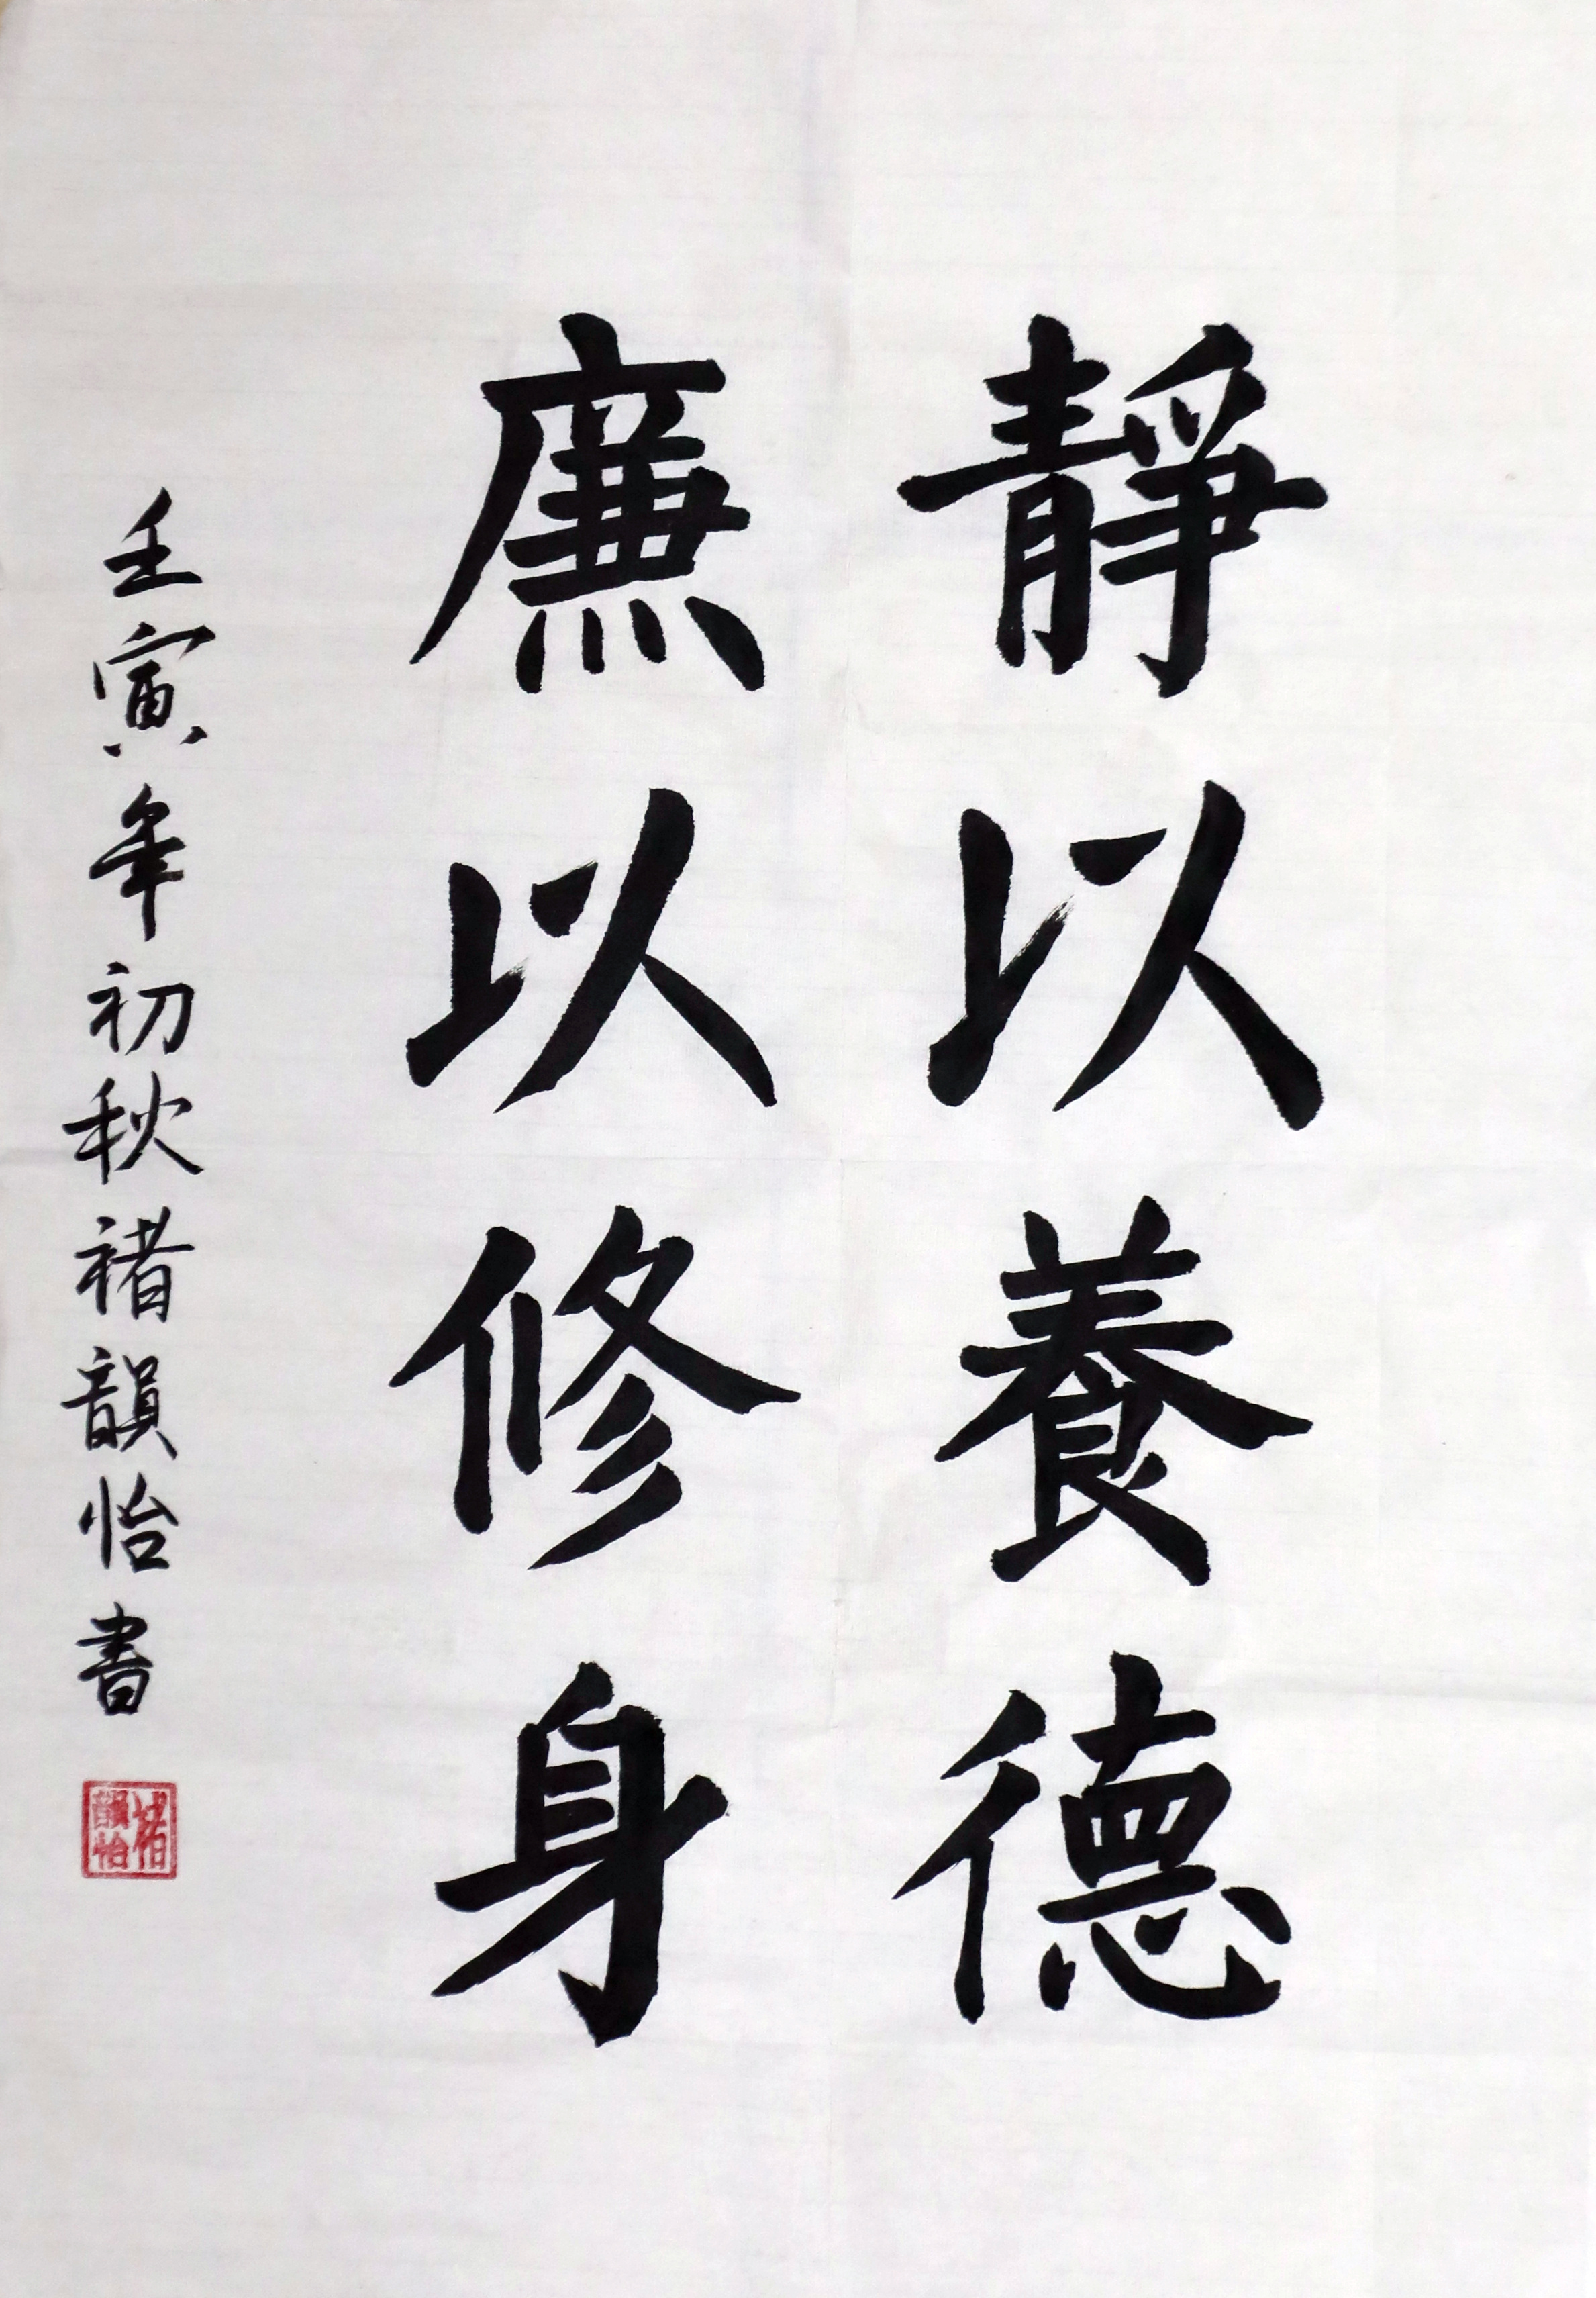 靜以養德
廉以修身
壬寅年初秋褚韻怡書
褚韻怡